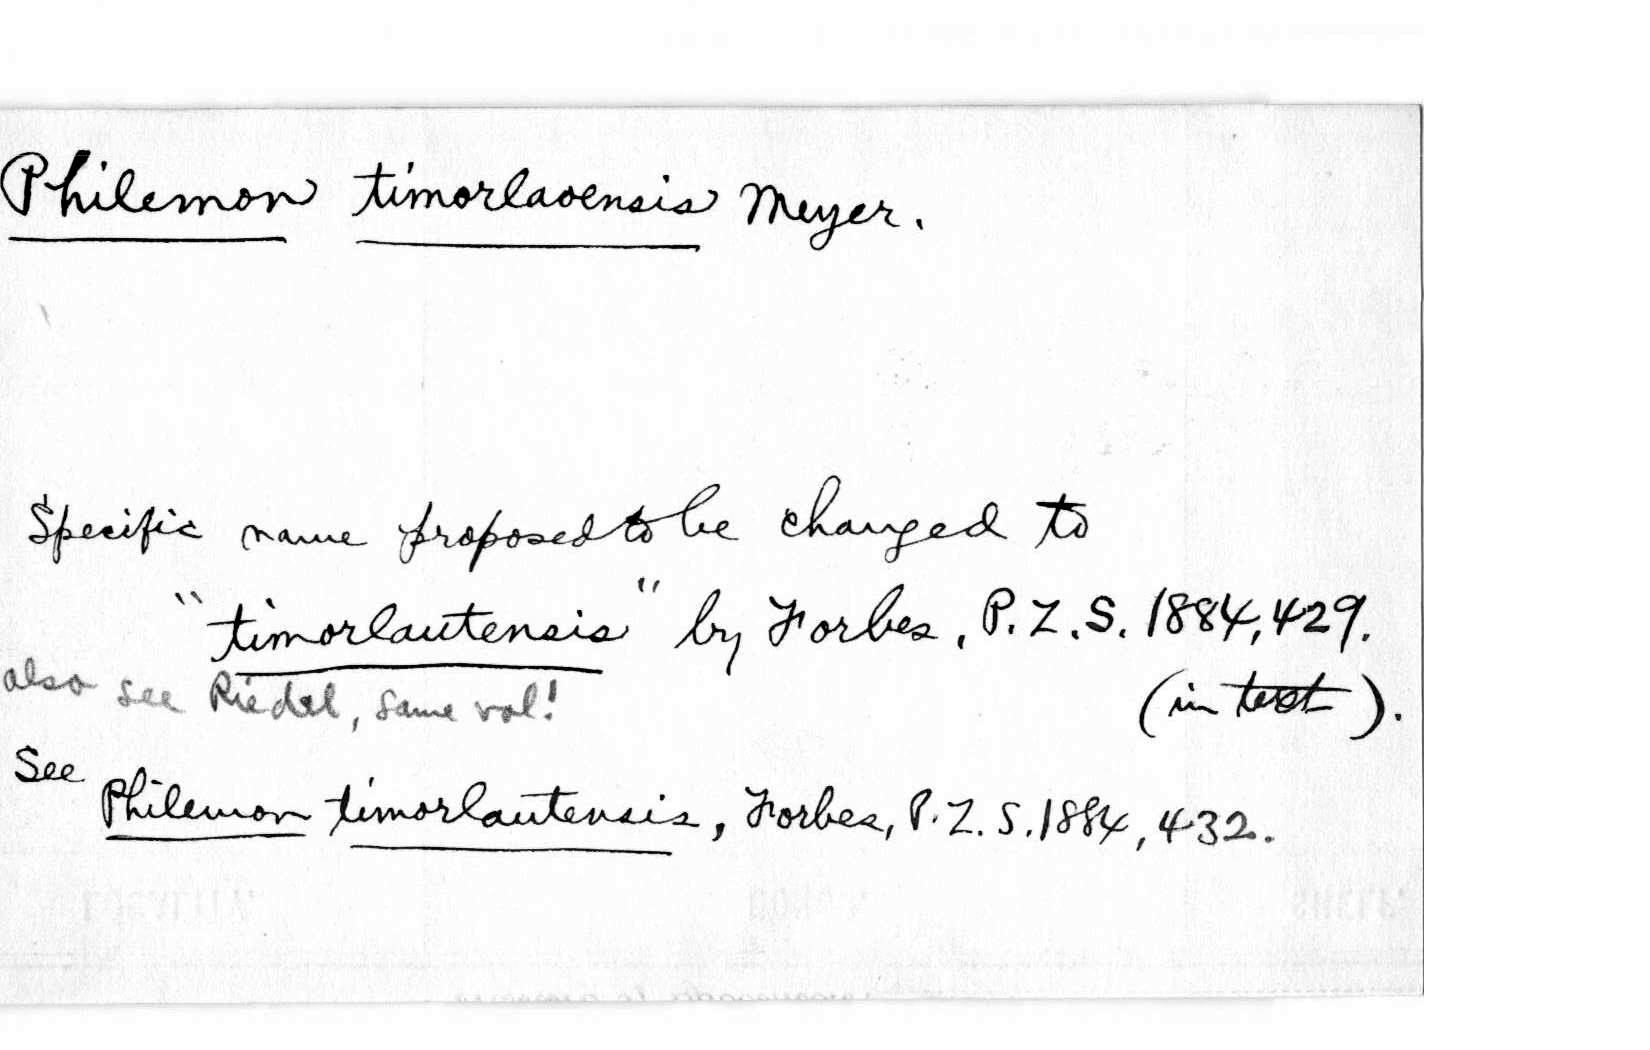 Philemon timorlaoensis Meyer.
Specific name proposed to be changed to
"timorlautensis" by Forbes, P.Z.S. 1884, 429.
(in text).
also see Riedel, same vol!
See Philemon timorlautensis, Forbes, P.Z.S. 1884, 432.